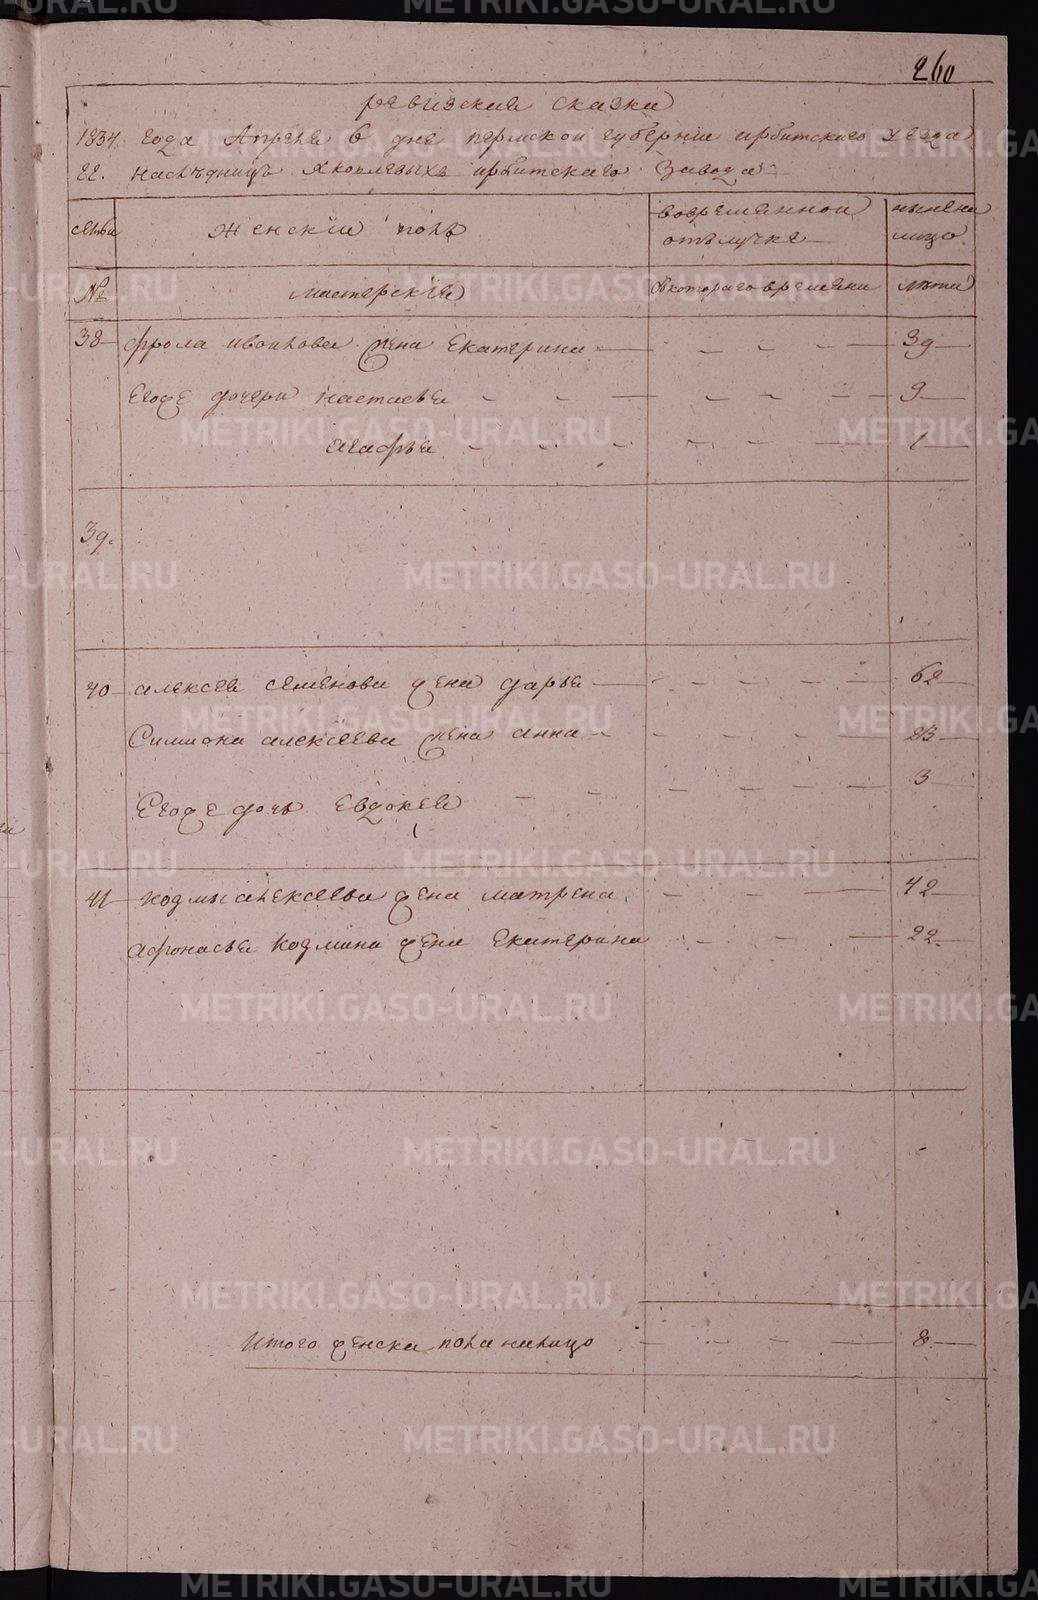 260
ревизские сказки
1834. года Апреля 6 дня пермской губерніи ирбитского уезда
22. наслѣдницъ Яковлевыхъ ирбитского завода
семьи
женскій полъ
во временной
отълучке
ныне на
лицо
№
мастерскіе
С котораго времяни
лѣта
38 фрола ивонова жена екатерина 39
его же дочери настасья 9
агафья 1
39.
40 алексея семенова жена дарья 62
Симиона алексеева жена анна 23
Его же дочь евдокея 3
41 козмы алексеева жена матрена 42
афонасья козмина жена екатерина 22.
Итого женска пола налицо 8
METRIKI.GASO-URAL.RU